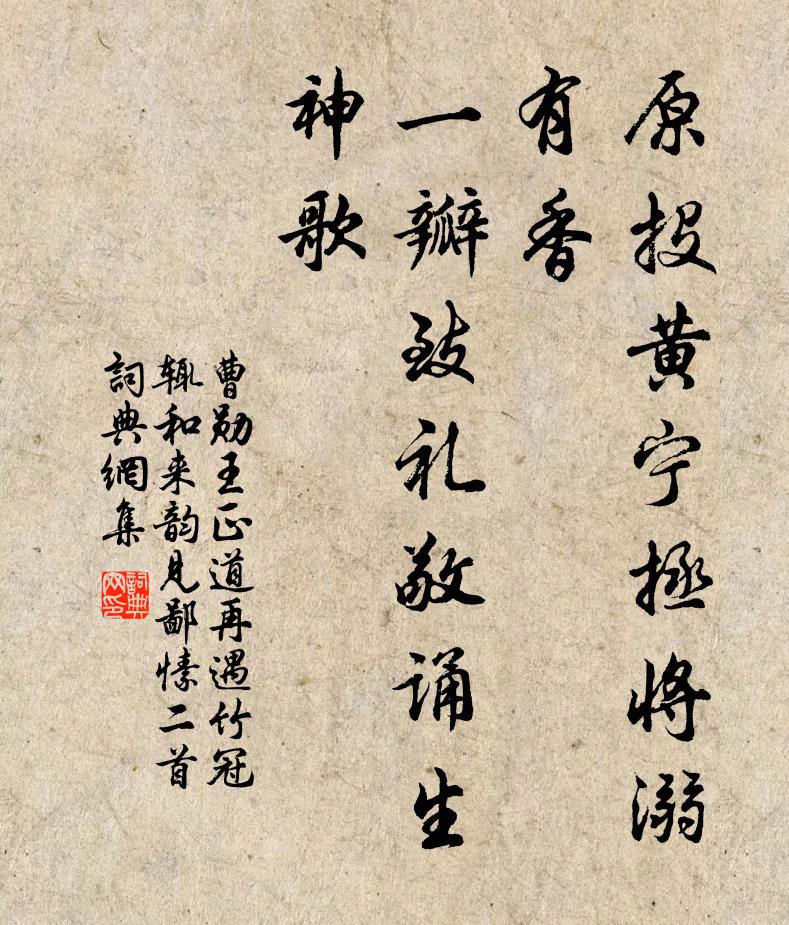 原投黄宁拯将溺
有香
一瓣致礼敬诵生
神歌
曹勋王正道再遇竹冠
辄和来韵见鄙愫二首
詞典網集
詞典
网印